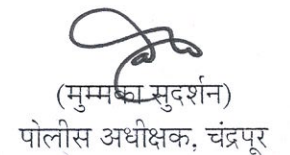 (मुम्मका सुदर्शन)
पोलीस अधीक्षक, चंद्रपूर